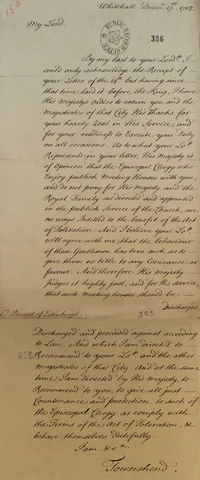 150
Whitehall Decem.r 27.th 1715.
386
PUBLIC
My Lord.
By my last to your Lord.p I
could only acknowledge the Receipt of
your Letter of the 14.th but having since
that time laid it before the King, I have
His Majesty's Orders to return you and the
Magistrates of that City His Thanks for
your hearty Zeal in His Service, and
for your readiness to Execute your Duty
on all occasions. As to what your Lo.p
Represents in your letter, His Majesty is
of Opinion that the Episcopal Clergy who
Enjoy publick Meeting Houses with you,
and do not pray for His Majesty and the
Royal Family as directed and appointed
in the publick Service of the Church, are
no ways Intitled to the benefit of the Act
of Toleration. And I believe your Lo.p
will agree with me, that the behaviour
of those Gentlemen has been such as to
give them no title to any Connivance or
favour And therefore His Majesty
judges it highly just, and for His service,
that such Meeting Houses should be —
Discharged
L.d Provost of Edinburgh.
Discharged and proceeded against according
to Law. And which I am directed to
Recommend to your Lo.p and the other
Magistrates of that City. And at the same
time I am directed by His Majesty, to
Recommend to you, to give all just
Countenance and protection, to such of
the Episcopal Clergy as comply with
the Terms of the Act of Toleration, &
behave themselves Dutifully.
I am &c.a
Townshend.